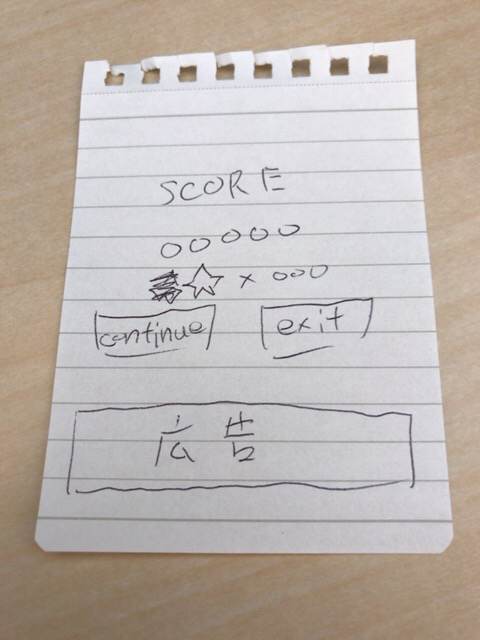 SCORE
00000
☆ × 000
continue exit
広告